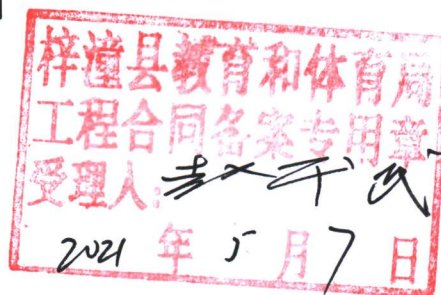 梓潼县教育和体育局
工程合同备案专用章
受理人:赵干民
2021年5月7日